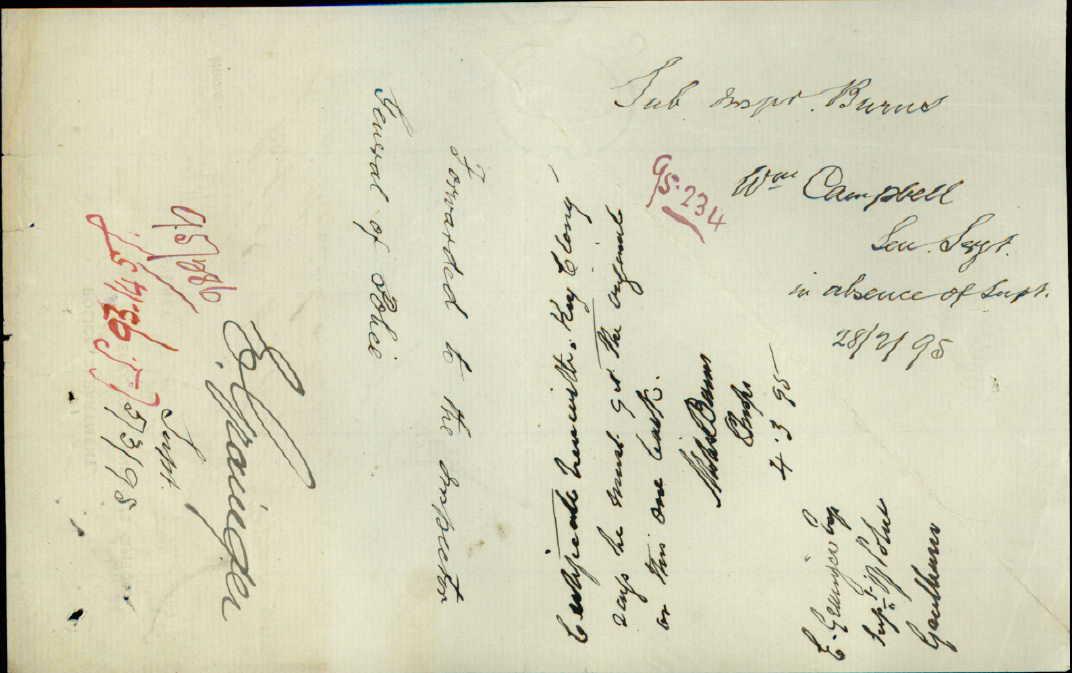 Sub Inspr. Burns
95.234
Wm Campbell
Sen. Sergt.
in absence of Supt.
28/2/95
Certificate herewith. Key Clong
says he must get the original
or this one back.
Burns
4.3.95
E. Grainger Esq
Supt. of Police
Goulburn
Forwarded to the Inspector
General of Police
E. Grainger
Supt.
5/3/95